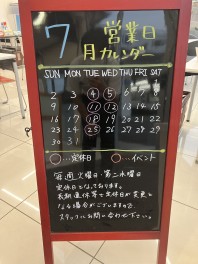 7月 営業日
カレンダー
SUN MON TUE WED THU FRI SAT
1
2 3 4 5 6 7 8
9 10 11 12 13 14 15
16 17 18 19 20 21 22
23 24 25 26 27 28 29
30 31
○…定休日 ○…イベント
毎週火曜日・第二水曜日
定休日となっております。
長期連休等で定休日が変更と
なる場合がございますので、
スタッフにお問い合わせ下さい。